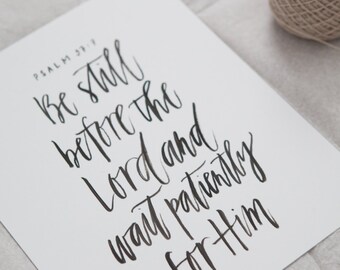 PSALM 37:7
Be still
before the
Lord and
wait patiently
for Him